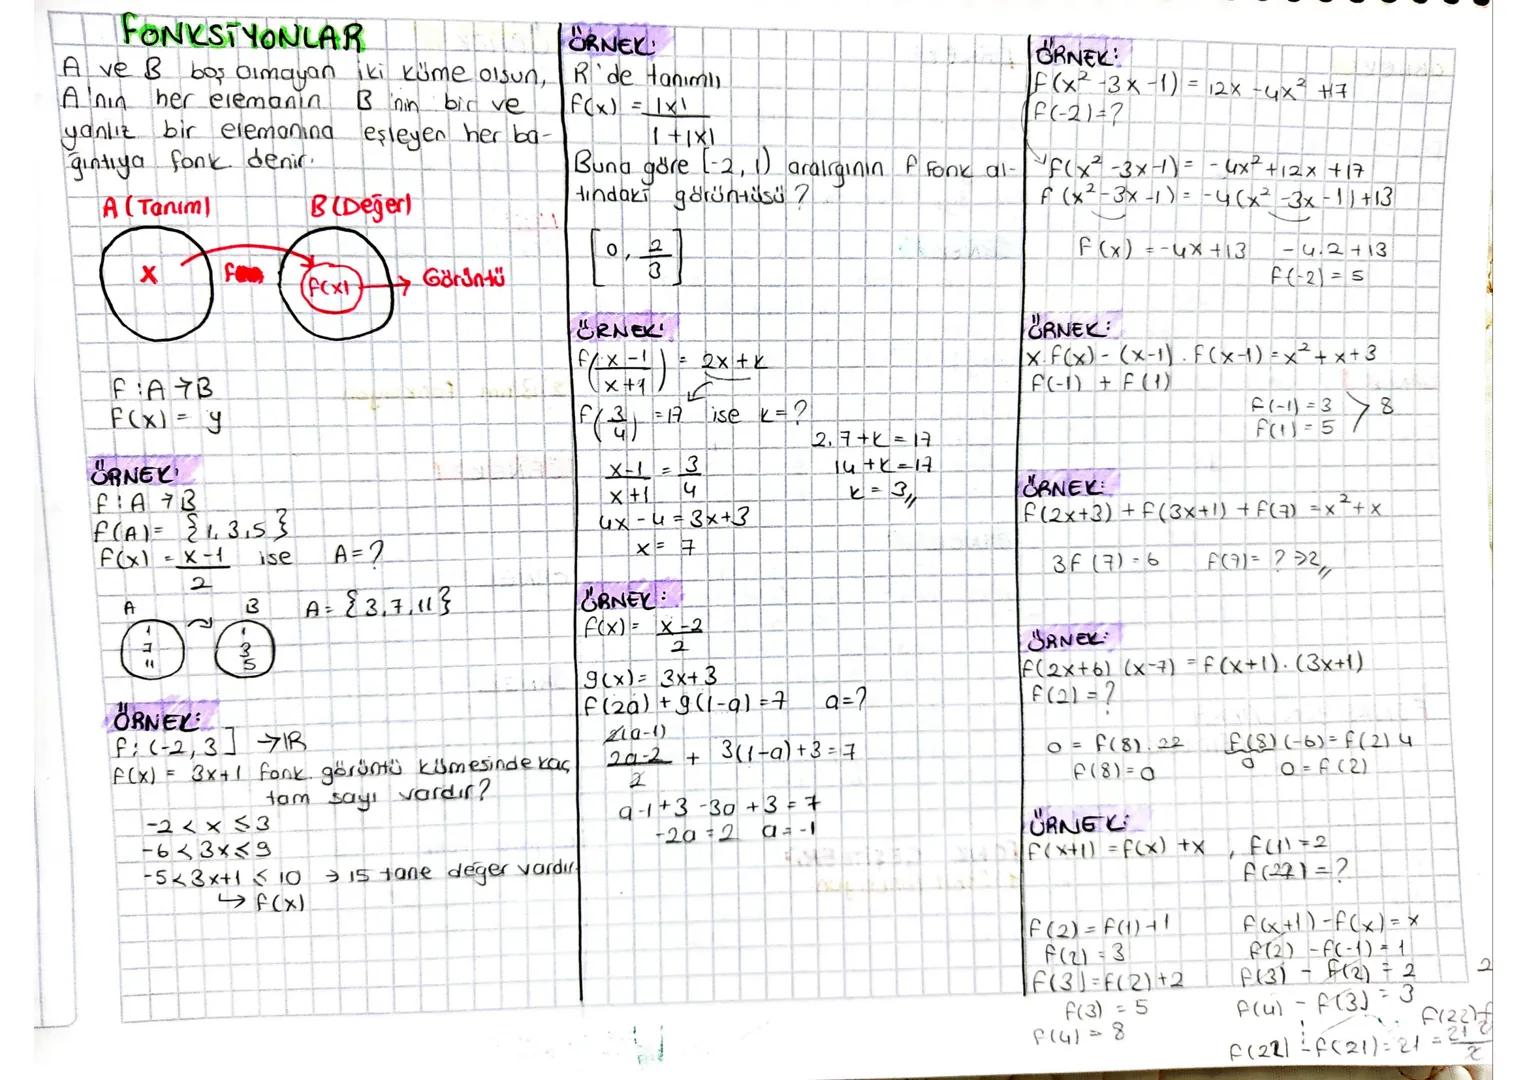 FONKSİYONLAR
A ve B boş olmayan iki küme olsun,
A'nın her elemanın B'nin bir ve
yanlız bir elemanına eşleyen her ba-
ğıntıya fonk. denir.
A (Tanım)
B (Değer)
x
f
f(x)
Görüntü
f : A → B
f(x) = y
ÖRNEK:
f : A → B
f(A) = {1, 3, 5}
f(x) = x-1 / 2 ise A = ?
A B
A = {3, 7, 11}
1
7
11
1
3
5
ÖRNEK:
f: (-2, 3] → IR
f(x) = 3x+1 fonk. görüntü kümesinde kaç
tam sayı vardır?
-2 < x ≤ 3
-6 < 3x ≤ 9
-5 < 3x+1 ≤ 10 → 15 tane değer vardır.
↳ f(x)
ÖRNEK:
R'de tanımlı
f(x) = |x| / 1+|x|
Buna göre [-2, 1) aralığının f fonk al-
tındaki görüntüsü ?
[0, 2/3]
ÖRNEK:
f(x-1 / x+1) = 2x+k
f(3/4) = 17 ise k = ?
x-1 / x+1 = 3/4
4x-4 = 3x+3
x = 7
2.7+k = 17
14+k = 17
k = 3
ÖRNEK:
f(x) = x-2 / 2
g(x) = 3x+3
f(2a) + g(1-a) = 7 a = ?
2(a-1)
2a-2 / 2 + 3(1-a)+3 = 7
a-1+3-3a+3 = 7
-2a = 2 a = -1
ÖRNEK:
f(x²-3x-1) = 12x-4x²+17
f(-2) = ?
f(x²-3x-1) = -4x²+12x+17
f(x²-3x-1) = -4(x²-3x-1)+13
f(x) = -4x+13 -4.2+13
f(-2) = 5
ÖRNEK:
x.f(x) - (x-1).f(x-1) = x²+x+3
f(-1) + f(1)
f(-1) = 3
f(1) = 5
8
ÖRNEK:
f(2x+3) + f(3x+1) + f(7) = x²+x
3f(7) = 6 f(7) = ? → 2
ÖRNEK:
f(2x+6) (x-7) = f(x+1).(3x+1)
f(2) = ?
0 = f(8).22 f(8)(-6) = f(2) 4
f(8) = 0 0 0 = f(2)
ÖRNEK:
f(x+1) = f(x) + x , f(1) = 2
f(22) = ?
f(2) = f(1)+1
f(2) = 3
f(3) = f(2)+2
f(3) = 5
f(4) = 8
f(x+1) - f(x) = x
f(2) - f(-1) = 1
f(3) - f(2) = 2
f(4) - f(3) = 3
f(22) - f(21) = 21